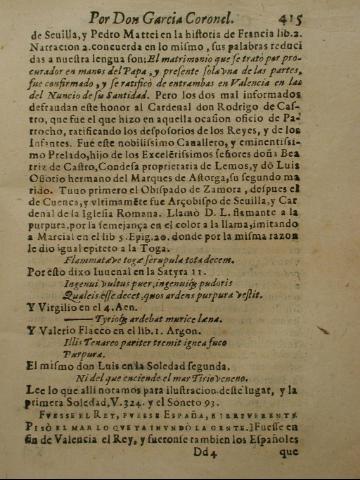 Por Don Garcia Coronel. 415
de Seuilla, y Pedro Mattei en la historia de Francia lib. 2.
Narracion 2. concuerda en lo mismo, sus palabras reduci
das a nuestra lengua son; El matrimonio que se trato por pro-
curador en manos del Papa, y presente sola vna de las partes,
fue confirmado, y se ratificò de entrambas en Valencia en las
del Nuncio de su Santidad. Pero los dos mal informados
defraudan este honor al Cardenal don Rodrigo de Cas-
tro, que fue el que hizo en aquella ocasion oficio de Pa-
rrocho, ratificando los desposorios de los Reyes, y de los
Infantes. Fue este nobilissimo Cauallero, y eminentissi-
mo Prelado, hijo de los Excelẽtissimos señores doña Bea
triz de Castro, Condesa proprietaria de Lemos, y dõ Luis
Osorio hermano del Marques de Astorga, su segundo ma
rido. Tuuo primero el Obispado de Zamora, despues el
de Cuenca, y vltimamẽte fue Arçobispo de Seuilla, y Car
denal de la Iglesia Romana. Llamò D. L. flamante a la
purpura, por la semejança en el color a la llama, imitando
a Marcial en el lib 5. Epig. 20. donde por la misma razon
le dio igual epiteto a la Toga.
Flammatæve togæ scrupula tota decem.
Por esto dixo Iuuenal en la Satyra 11.
Ingenui vultus puer, ingenuiq; pudoris
Qualeis esse decet, quos ardens purpura vestit.
Y Virgilio en el 4. Aen.
——— Tyrioq; ardebat murice læna.
Y Valerio Flacco en el lib. 1. Argon.
Illis Tenareo pariter tremit ignea fuco
Purpura.
El mismo don Luis en la Soledad segunda.
Ni del que enciende el mar Tirio veneno.
Lee lo que alli notamos para ilustracion deste lugar, y la
primera Soledad, V. 324. y el Soneto 93.
FVESSE EL REY, FVESSE ESPAÑA, E IRREVERENTE
PISÒ EL MAR LO QVE YA INVNDÒ LA GENTE.] Fuesse en
fin de Valencia el Rey, y fueronse tambien los Españoles
Dd4 que